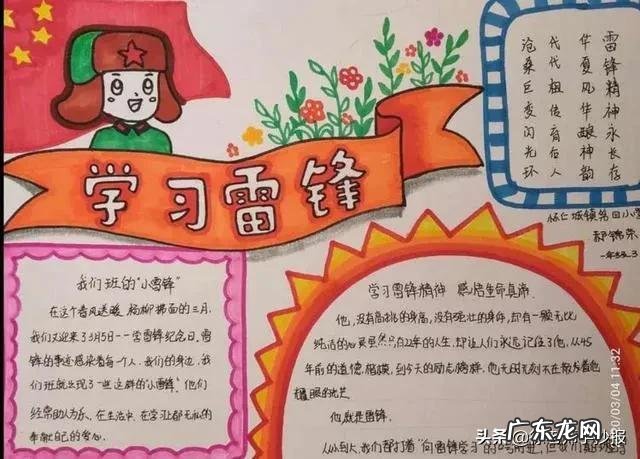 学习雷锋
雷锋精神永长存
华夏风华酿神韵
代代祖传育后人
沧桑巨变闪光环
怀仁城镇第四小学
一年级.3
我们班的"小雷锋"
在这个春风送暖 杨柳拂面的三月.
我们又迎来了3月5日--学雷锋纪念日,雷
锋的事迹感染着每一个人.我们的身边,我
们班就出现了一些这样的"小雷锋".他们
经常助人为乐、在生活中、在学习上都无私的
奉献自己的爱心
学习雷锋精神 感悟生命真帝.
他,没有高挑的身高,没有强壮的身体,却有一颗无比
纯洁的心灵虽然只有22年的人生,却让人们永远记住了他,从45
年前的道德楷模,到今天的励志榜样.他无时无刻不在散发着他
耀眼的光芒
他就是雷锋.
从小到大,我们都打着"向雷锋学习"的口号前进,但
0/03/04 11:32
头条
广东龙网